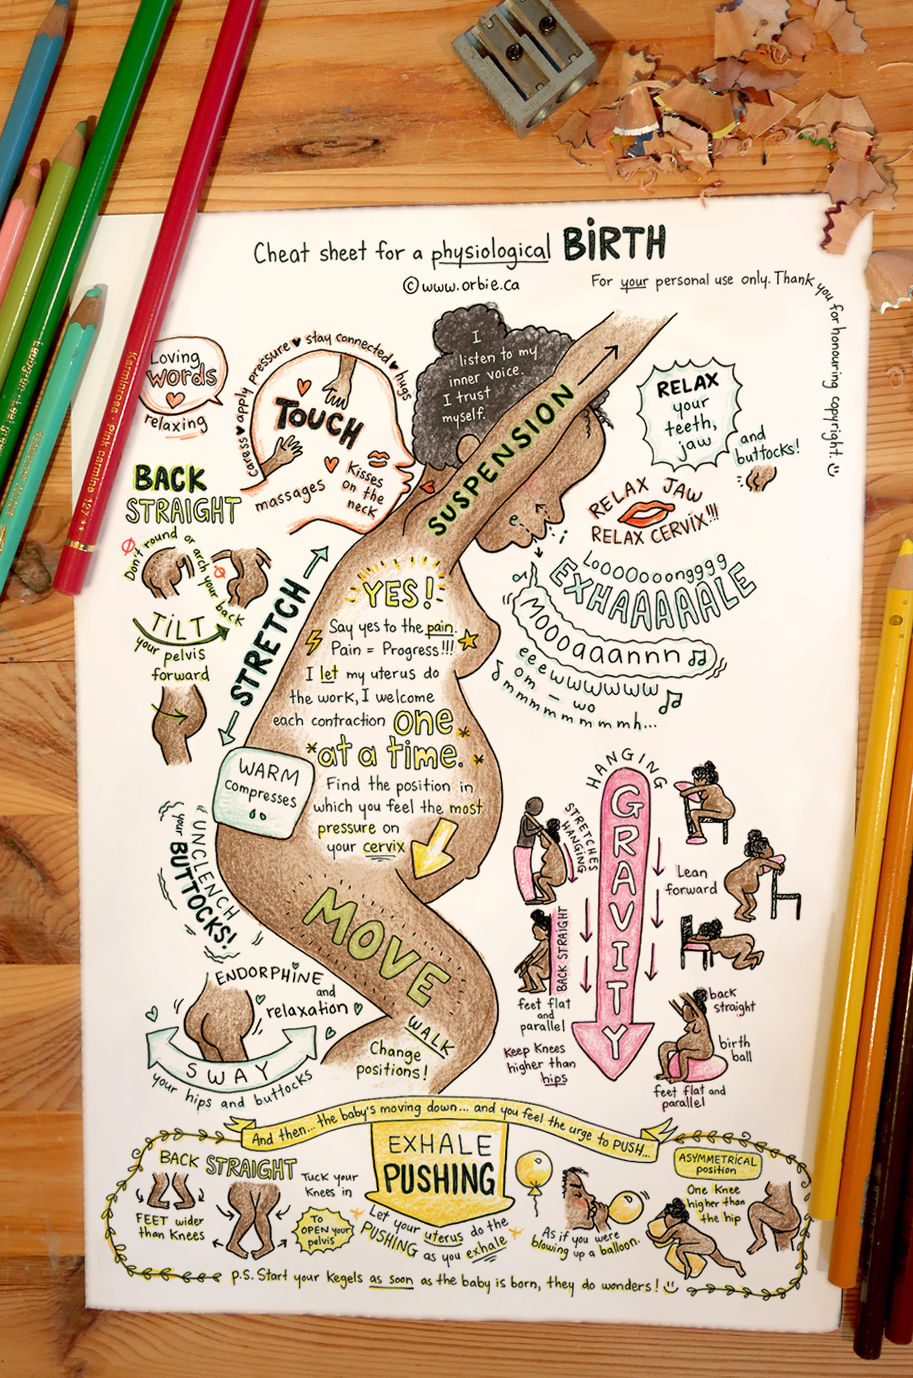 Cheat sheet for a physiological BiRTH
©www.orbie.ca
For your personal use only. Thank you for honouring copyright. :)
Loving
words
relaxing
caress ♥ apply pressure ♥ stay connected ♥ hugs
TOUCH
massages
Kisses
on the
neck
I
listen to my
inner voice.
I trust
myself.
SUSPENSION
RELAX
your
teeth,
jaw
and
buttocks!
RELAX JAW
RELAX CERVIX!!!
BACK
STRAIGHT
Don't round or arch your back
TILT
your pelvis
forward
STRETCH
YES!
Say yes to the pain.
Pain = Progress!!!
I let my uterus do
the work, I welcome
each contraction one
*at a time.*
Find the position in
which you feel the most
pressure on
your cervix
LoooOooongggg
EXHAAAAALE
MOOOaaannn
eeewwwwww
om - wo
mmmmmmmmmh...
WARM
compresses
UNCLENCH
your
BUTTOCKS!
MOVE
WALK
Change
positions!
ENDORPHINE
and
relaxation
SWAY
your hips and buttocks
HANGING
GRAVITY
STRETCHES
HANGING
Lean
forward
BACK STRAIGHT
feet flat
and
parallel
Keep Knees
higher than
hips
back
straight
birth
ball
feet flat and
parallel
And then... the baby's moving down... and you feel the urge to PUSH...
EXHALE
PUSHING
BACK STRAIGHT
FEET wider
than Knees
Tuck your
Knees in
To
OPEN your
pelvis
Let your uterus do the
PUSHING as you exhale
As if you were
blowing up a balloon.
ASYMMETRICAL
position
One Knee
higher than
the hip
P.S. Start your Kegels as soon as the baby is born, they do wonders! :)